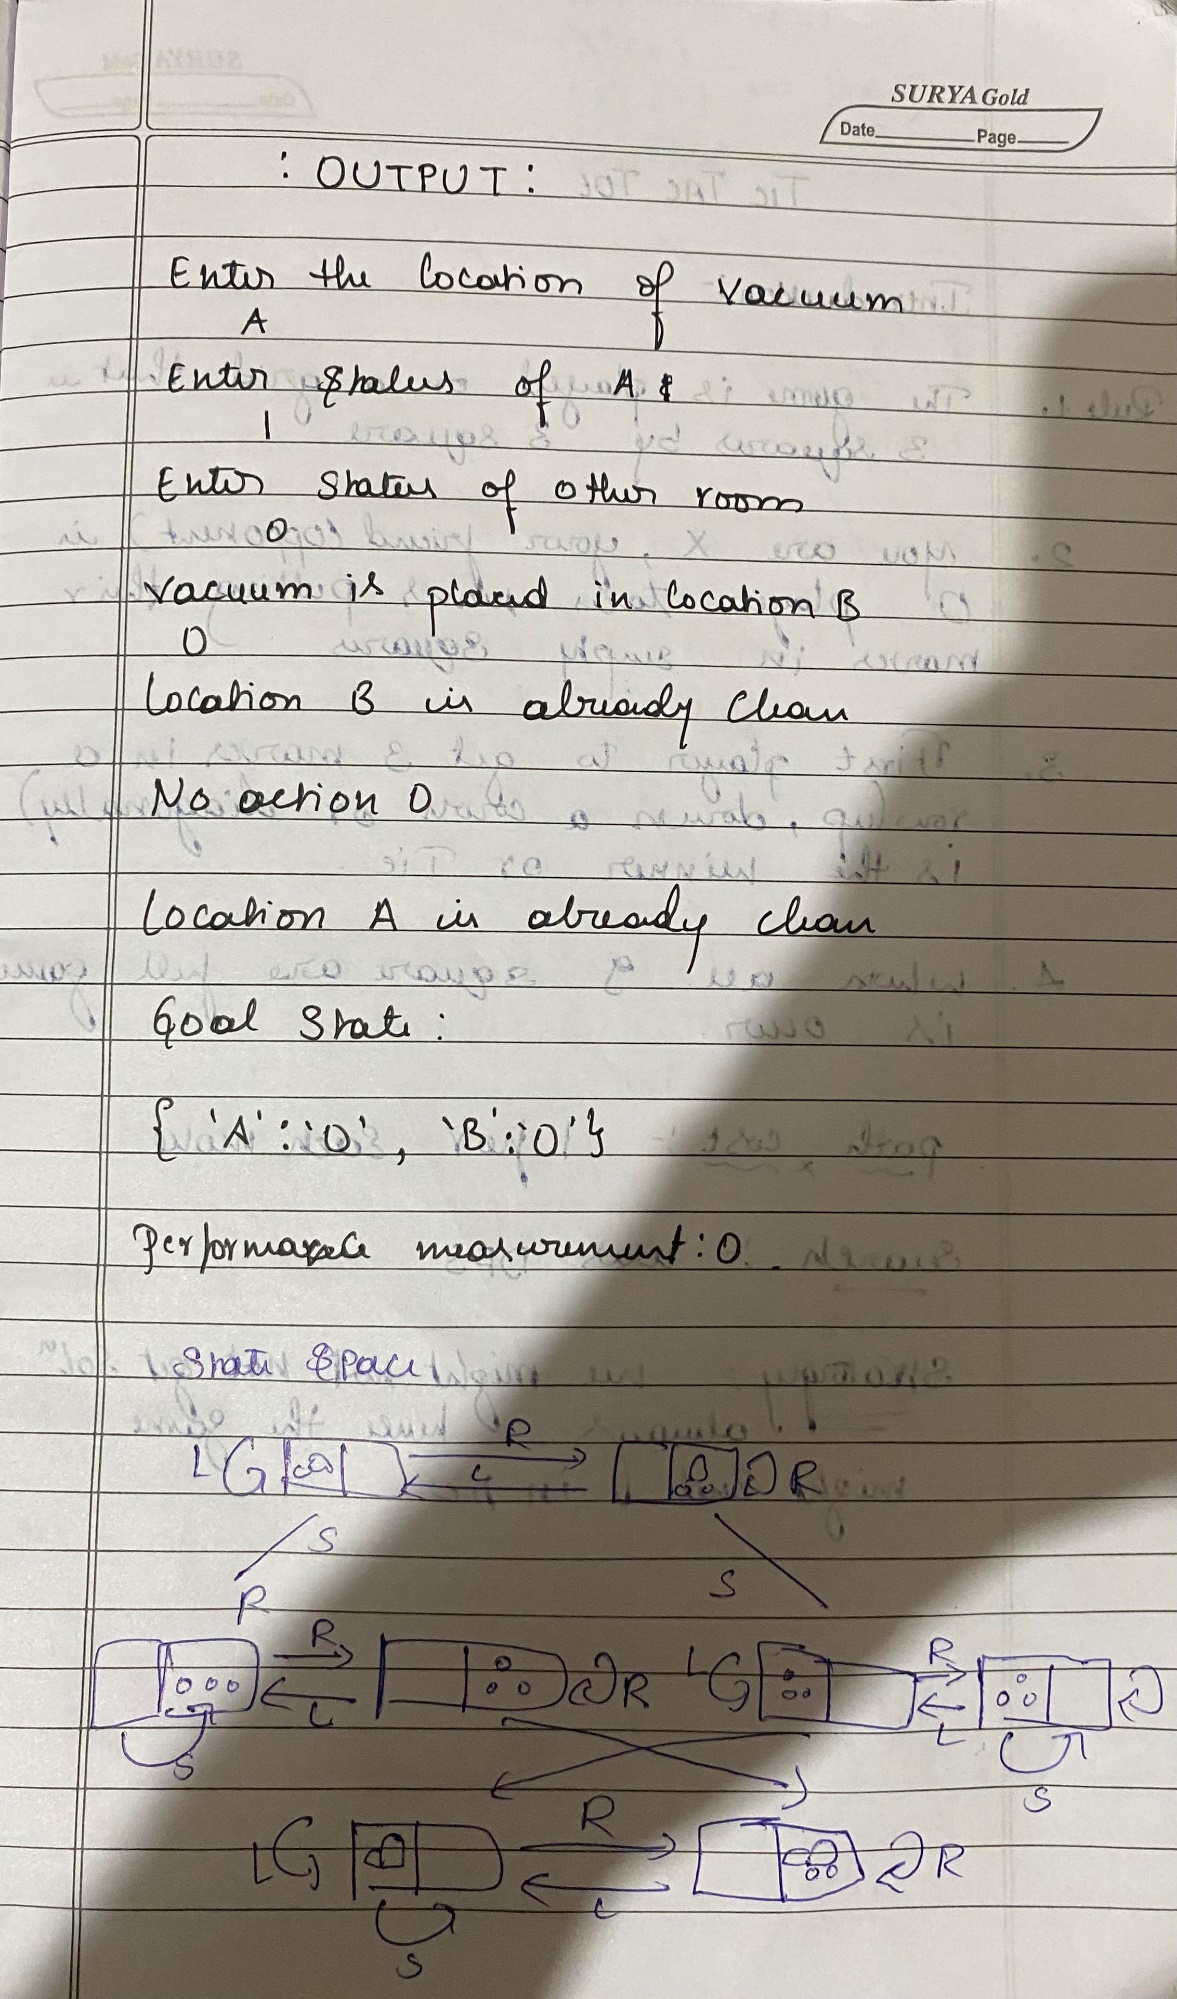 SURYA Gold
Date Page
: OUTPUT :
Enter the location of vacuum
A
Enter status of A
1
Enter status of other room
0
vacuum is placed in location B
0
Location B is already clean
No action 0
Location A is already clean
Goal State :
{ 'A' : '0' , 'B' : '0' }
Performance measurement : 0.
State Space
R
L L R
S
S
R
R L R
L R L
S S
R
L L R
S